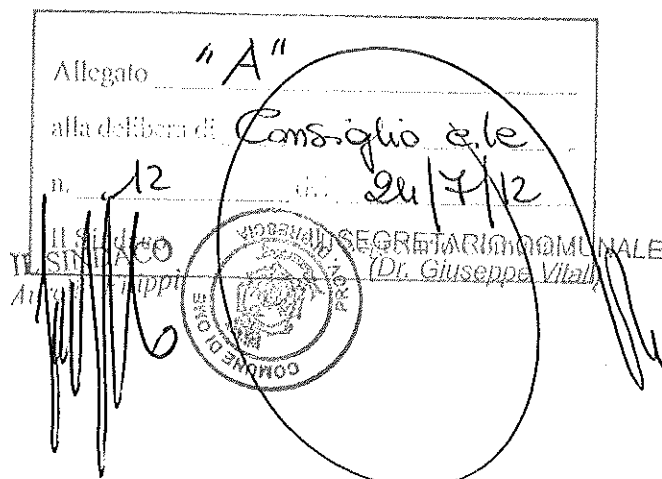 Allegato "A"
alla delibera di Consiglio c.le
n. 12 del 24/7/12
Il Sindaco
IL SINDACO IL SEGRETARIO COMUNALE
Filippi (Dr. Giuseppe Vitali)
COMUNE DI OME
PROV. DI BRESCIA